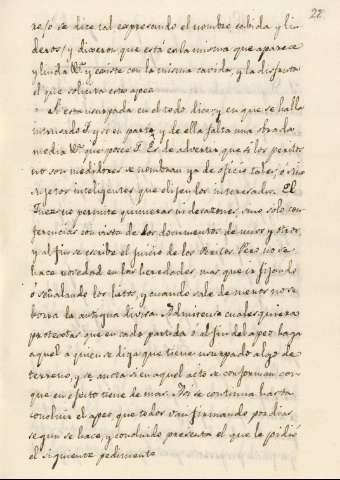 22
reso se dize tal expresando el nombre cabida y lin
deros/ y dixeron que está en la misma que aparece
y linda &ª. y existe con la misma cavida, y la disfruta
el que solicita este apeo
Si esta usurpada en el todo dicen y en que se halla
intrusado F. y si en parte, y de ella falta una obrada
media &ª. que posee F. Es de advertir que si los peritos
no son medidores se nombran ya de oficio tales, o sino
sujetos inteligentes que elijan los interesados. El
Juez no permite quimeras ni de razones, sino solo con
ferencias con vista de los documentos de unos y otros,
y al fin se escribe el juicio de los Peritos. Pero no se
hace novedad en las heredades, mas que ir fijando
o señalando los hitos, y cuando sale de menos no se
borra la antigua divisa. Admitense cualesquiera
protestas que en cada partida ó al fin del apeo haga
aquel a quien se diga que tiene usurpado algo de
terreno, y se anota si en aquel acto se conforman con
que en efecto tiene de mas. Asi se continua hasta
concluir el apeo, que todos van firmando por dias,
segun se hace, y concluido presenta el que le pidió
el siguiente pedimento